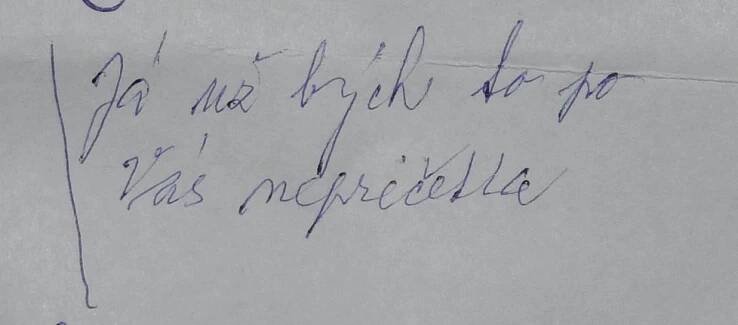 Já už bých to po
Vás nepřečetla